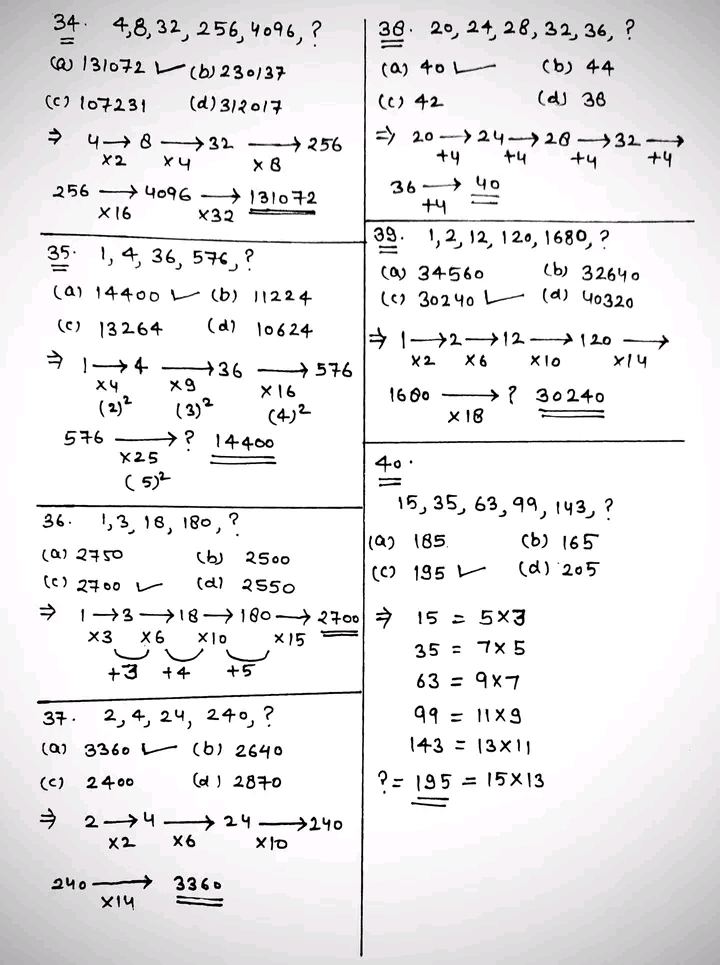 34. 4,8,32, 256,4096,?
(a) 131072 ✓ (b) 230137
(c) 107231 (d) 312017
⇒ 4 → 8 → 32 → 256
×2 ×4 ×8
256 → 4096 → 131072
×16 ×32
35. 1, 4, 36, 576,?
(a) 14400 ✓ (b) 11224
(c) 13264 (d) 10624
⇒ 1 → 4 → 36 → 576
×4 ×9 ×16
(2)² (3)² (4)²
576 → ? 14400
×25
(5)²
36. 1,3, 18, 180, ?
(a) 2750 (b) 2500
(c) 2700 ✓ (d) 2550
⇒ 1 → 3 → 18 → 180 → 2700
×3 ×6 ×10 ×15
+3 +4 +5
37. 2,4, 24, 240,?
(a) 3360 ✓ (b) 2640
(c) 2400 (d) 2870
⇒ 2 → 4 → 24 → 240
×2 ×6 ×10
240 → 3360
×14
38. 20, 24, 28, 32, 36, ?
(a) 40 ✓ (b) 44
(c) 42 (d) 38
⇒ 20 → 24 → 28 → 32 →
+4 +4 +4 +4
36 → 40
+4
39. 1,2, 12, 120, 1680, ?
(a) 34560 (b) 32640
(c) 30240 ✓ (d) 40320
⇒ 1 → 2 → 12 → 120 →
×2 ×6 ×10 ×14
1680 → ? 30240
×18
40.
15, 35, 63, 99, 143, ?
(a) 185 (b) 165
(c) 195 ✓ (d) 205
⇒ 15 = 5×3
35 = 7×5
63 = 9×7
99 = 11×9
143 = 13×11
? = 195 = 15×13